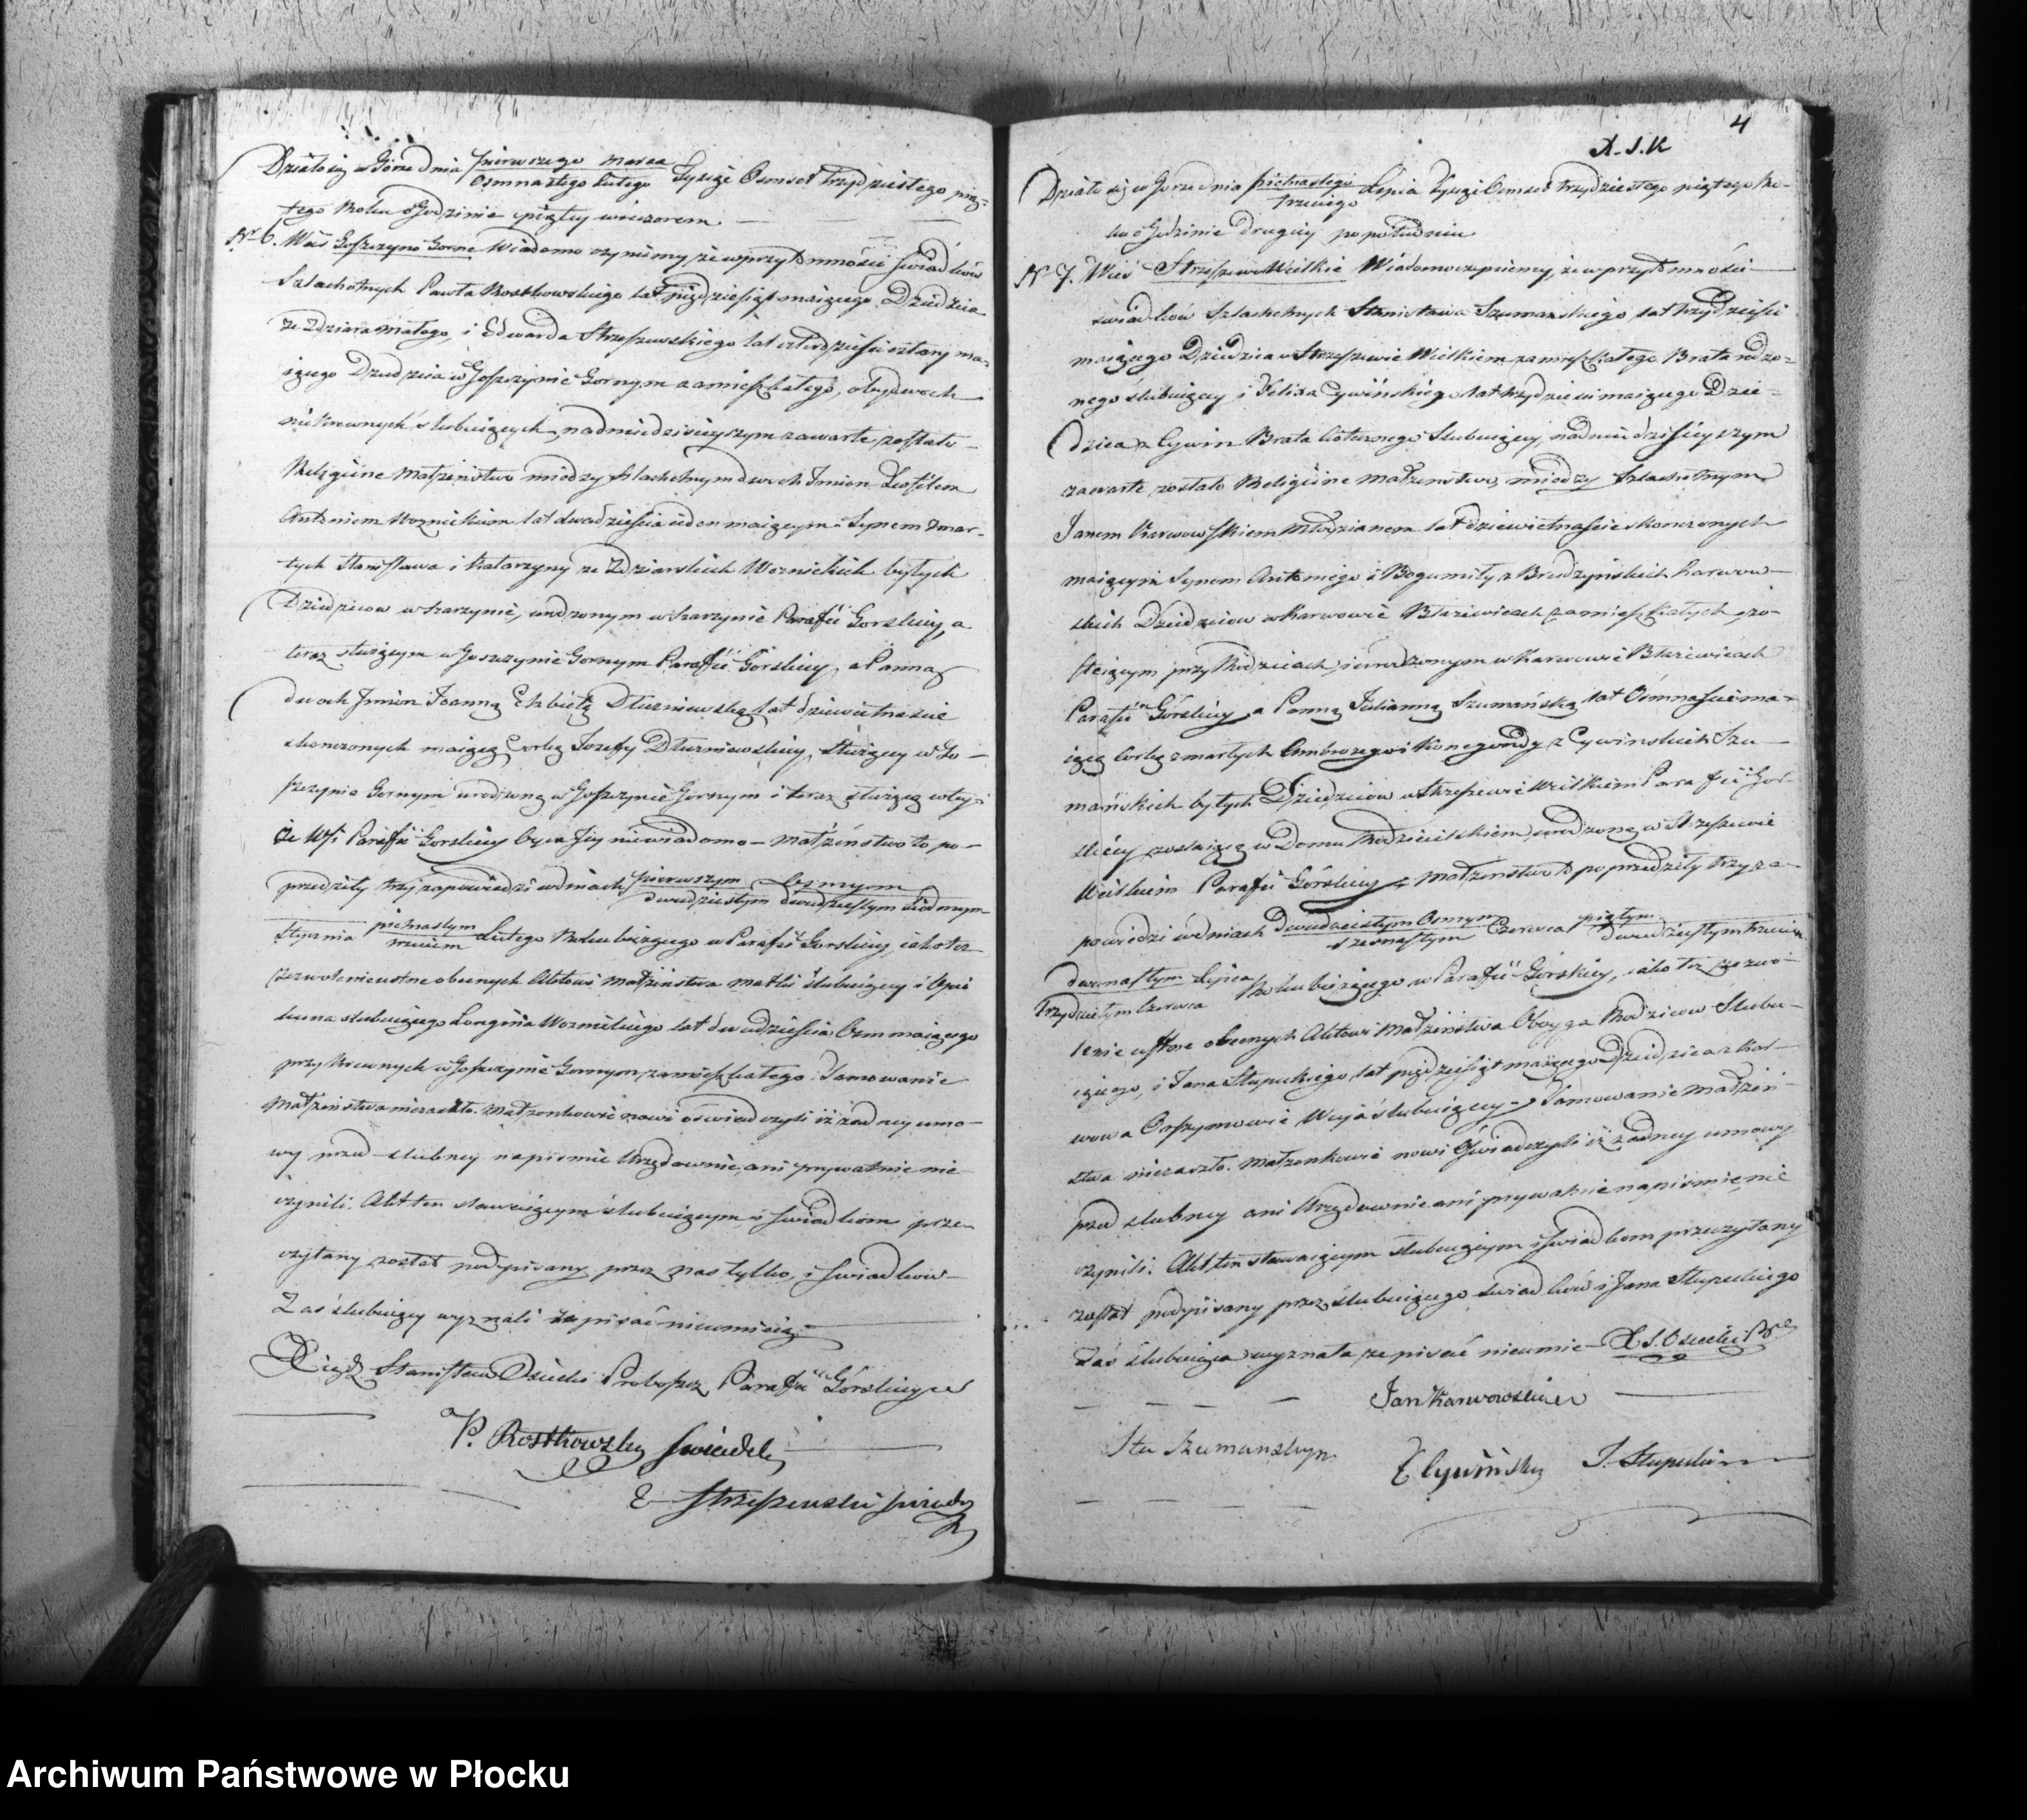 Działo się w Górze dnia pierwszego marca / osmnastego Lutego Tysiąc Osmset trzydziestego pią-
tego Roku o Godzinie piątey wieczorem
Nr 6. Wieś Goszczyno Gorne Wiadomo czynimy że w przytomności świadków
Szlachetnych Pawła Rostkowskiego lat piędziesiąt maiącego Dziedzica
ze Zdziara małego, i Edwarda Strzeszewskiego lat czterdzieści cztery ma-
iącego Dziedzica w Goszczynie Gornym zamieszkałego, obydwoch
niekrewnych ślubuiących, na dniu dzisieyszym zawarte zostało
Religiine małżeństwo między szlachetnym dwoch Imion Teofilem
Antonim Woznickim lat dwadzieścia ieden maiącym Synem zmar-
łych Stanisława i Katarzyny ze Zdziarskich Woznickich byłych
Dziedzicow w Szarzynie, urodzonym w Szarzynie Parafii Gorskiey, a
teraz służącym w Goszczynie Gornym Parafii Górskiey, a Panną
dwoch Imion Joanną Elzbietą Dłuzniewską lat dziewietnaście
skonczonych maiącą Corką Jozefy Dłuzniewskiey, służącey w Go-
szczynie Gornym urodzoną w Goszczynie Gornym i teraz służącą w tey-
że Wsi Parafii Gorskiey Oyca Jey niewiadomo – małżeństwo to po-
przedziły trzy zapowiedzi w dniach pierwszym / dwudziestym osmym / dwudziestym siodmym
Stycznia pietnastym / trzecim Lutego Roku bieżącego w Parafii Gorskiey, iako też
zezwolenie ustne obecnych Aktowi Małżeństwa matki ślubuiącey i Opie
kuna ślubuiącego Longina Woznickiego lat dwadzieścia Osm maiącego
przy Krewnych w Goszczynie Gornym zamieszkałego. Tamowanie
małżeństwa nie zaszło. małzonkowie nowi oświadczyli iż żadney umo-
wy przed ślubney na piśmie Urzędownie, ani prywatnie nie
czynili. Akt ten stawaiącym ślubuiącym i świadkom prze-
czytany został podpisany przez nas tylko, i świadków
Zaś ślubuiący wyznali że pisać nieumieią
Xiądz Stanisław Osiecki Proboszcz Parafii Górskiey
P. Rostkowski swiadek
E Strzeszewski swiadek
4
A. S. K
Działo się w Gorze dnia pietnastego / trzeciego Lipca Tysiąc Osmset trzydziestego piątego Ro-
ku o Godzinie drugiey po południu
Nr 7. Wieś Strzeszewo Wielkie Wiadomo czyniemy, że w przytomności
świadków Szlachetnych Stanisława Szumanskiego lat trzydzieści
maiącego Dziedzica w Strzeszewie Wielkiem zamieszkałego Brata rodzo-
nego ślubuiącey i Felixa Cywińskiego lat trzydzieści maiącego Dzie-
dzica z Cywin Brata Ciotecznego Slubuiącey, na dniu dzisieyszym
zawarte zostało Religiine małżenstwo, miedzy Szlachetnym
Janem Karwowskiem Młodzianem lat dziewietnaście skonczonych
maiącym Synem Antoniego i Bogumiły z Brudzyńskich Karwow-
skich Dziedzicow w Karwowie Błaziewicach zamieszkałych, zo-
staiącym przy Rodzicach i urodzonym w Karwowie Błaziewicach
Parafii Górskiey, a Panną Julianną Szumańską lat Osmnaście ma-
iącą Corką zmarłych Ambrozego i Konegundy z Cywinskich Szu-
mańskich byłych Dziedziców w Strzeszewie Wielkiem Parafii Gor-
skiey zostaiącą w Domu Rodzicielskiem, urodzoną w Strzeszewie
Wielkiem Parafii Górskiey – Małżenstwo to poprzedziły trzy za-
powiedzi w dniach Dwudziestym Osmym / szesnastym Czerwca piątym / dwudziestym trzecim
dwunastym Lipca / Trzydziestym Czerwca Roku bieżącego w Parafii Górskiey, iako też zezwo-
lenie ustne obecnych Aktowi Małżeństwa Oboyga Rodzicow Slubu-
iącego, i Jana Słupeckiego lat pięćdziesiąt maiącego Dziedzica z Kar-
wowa Orszymowie Wuja ślubuiącey – Tamowanie małżeń-
stwa nie zaszło. Małzonkowie nowi Oświadczyli iż żadney umowy
przed slubney ani Urzędownie ani prywatnie na piśmie nie
czynili. Akt ten stawaiącym ślubuiącym i świadkom przeczytany
został podpisany przez ślubuiącego świadków i Jana Słupeckiego
Zaś ślubuiąca wyznała, że pisać nieumie X S. Osiecki
Jan Karwowski
Sta Szumanskyn
F Cywiński J. Słupecki